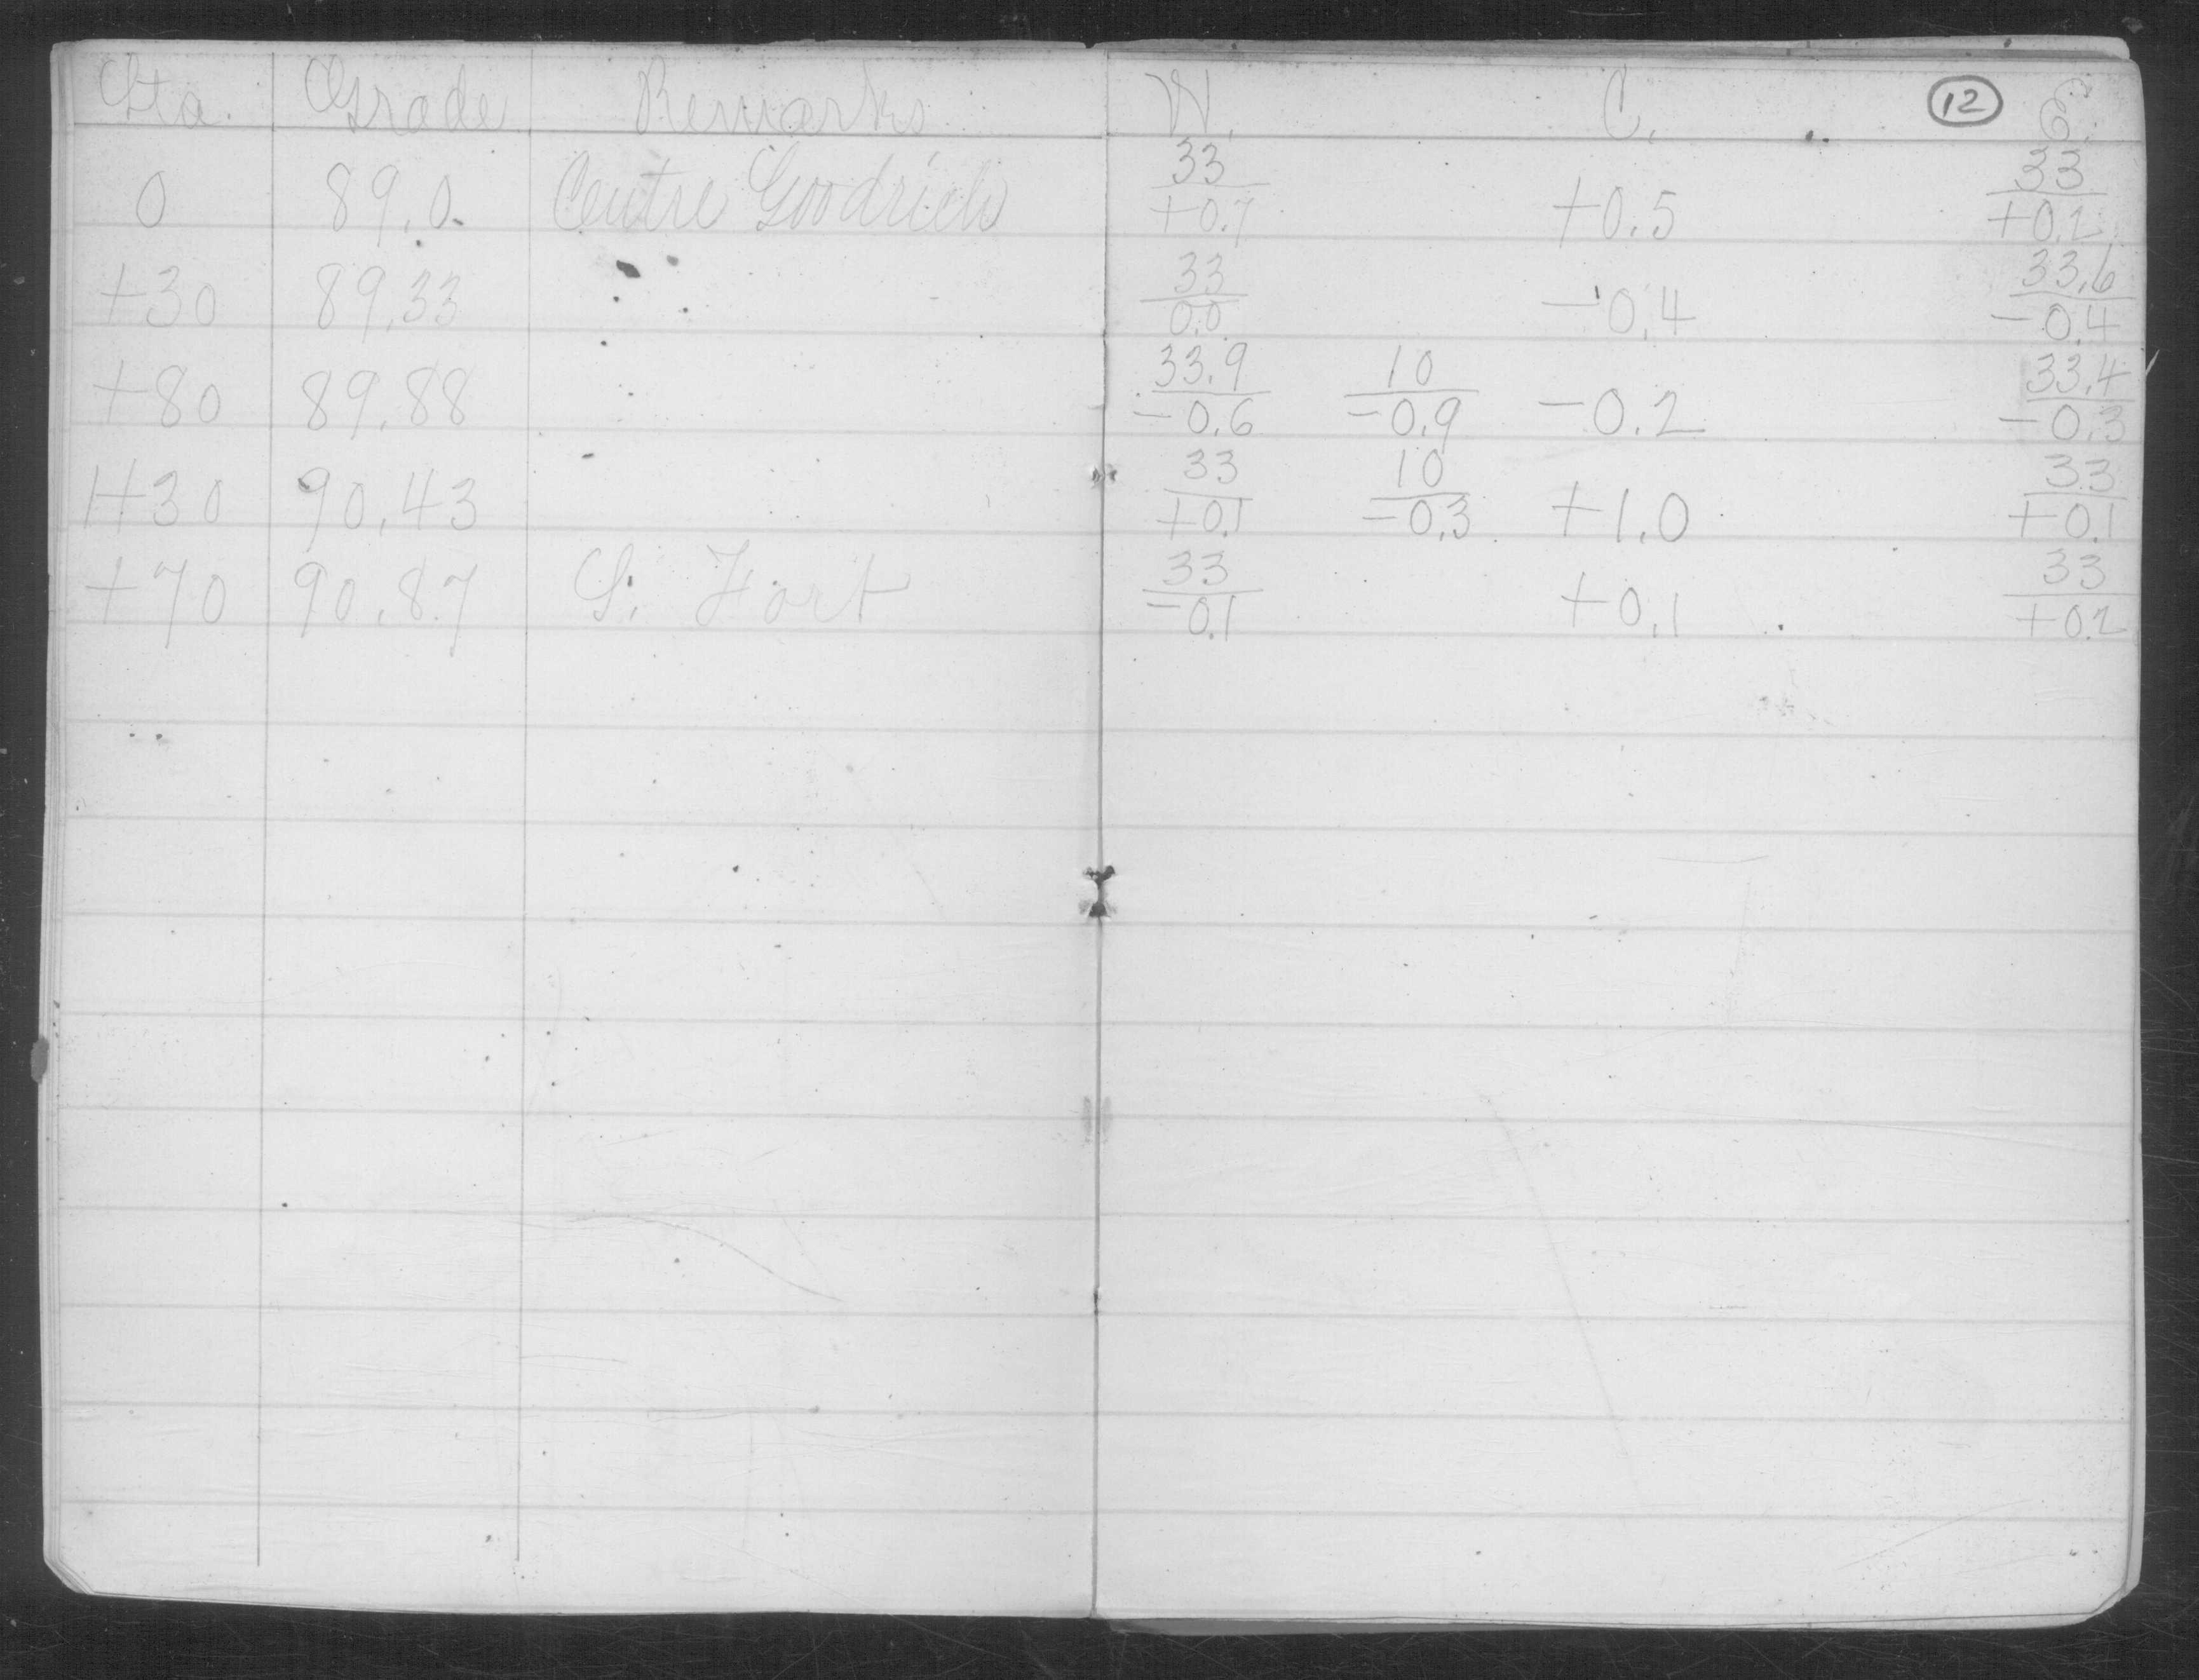 Sta. Grade Remarks W. C. 12 E.
33 33
0 89.0 Centre Goodrich +0.7 +0.5 +0.2
33 33.6
+30 89.33 0.0 -0.4 -0.4
33.9 10 33.4
+80 89.88 -0.6 -0.9 -0.2 -0.3
33 10 33
1+30 90.43 +0.1 -0.3 +1.0 +0.1
33 33
+70 90.87 -0.1 +0.1 +0.2